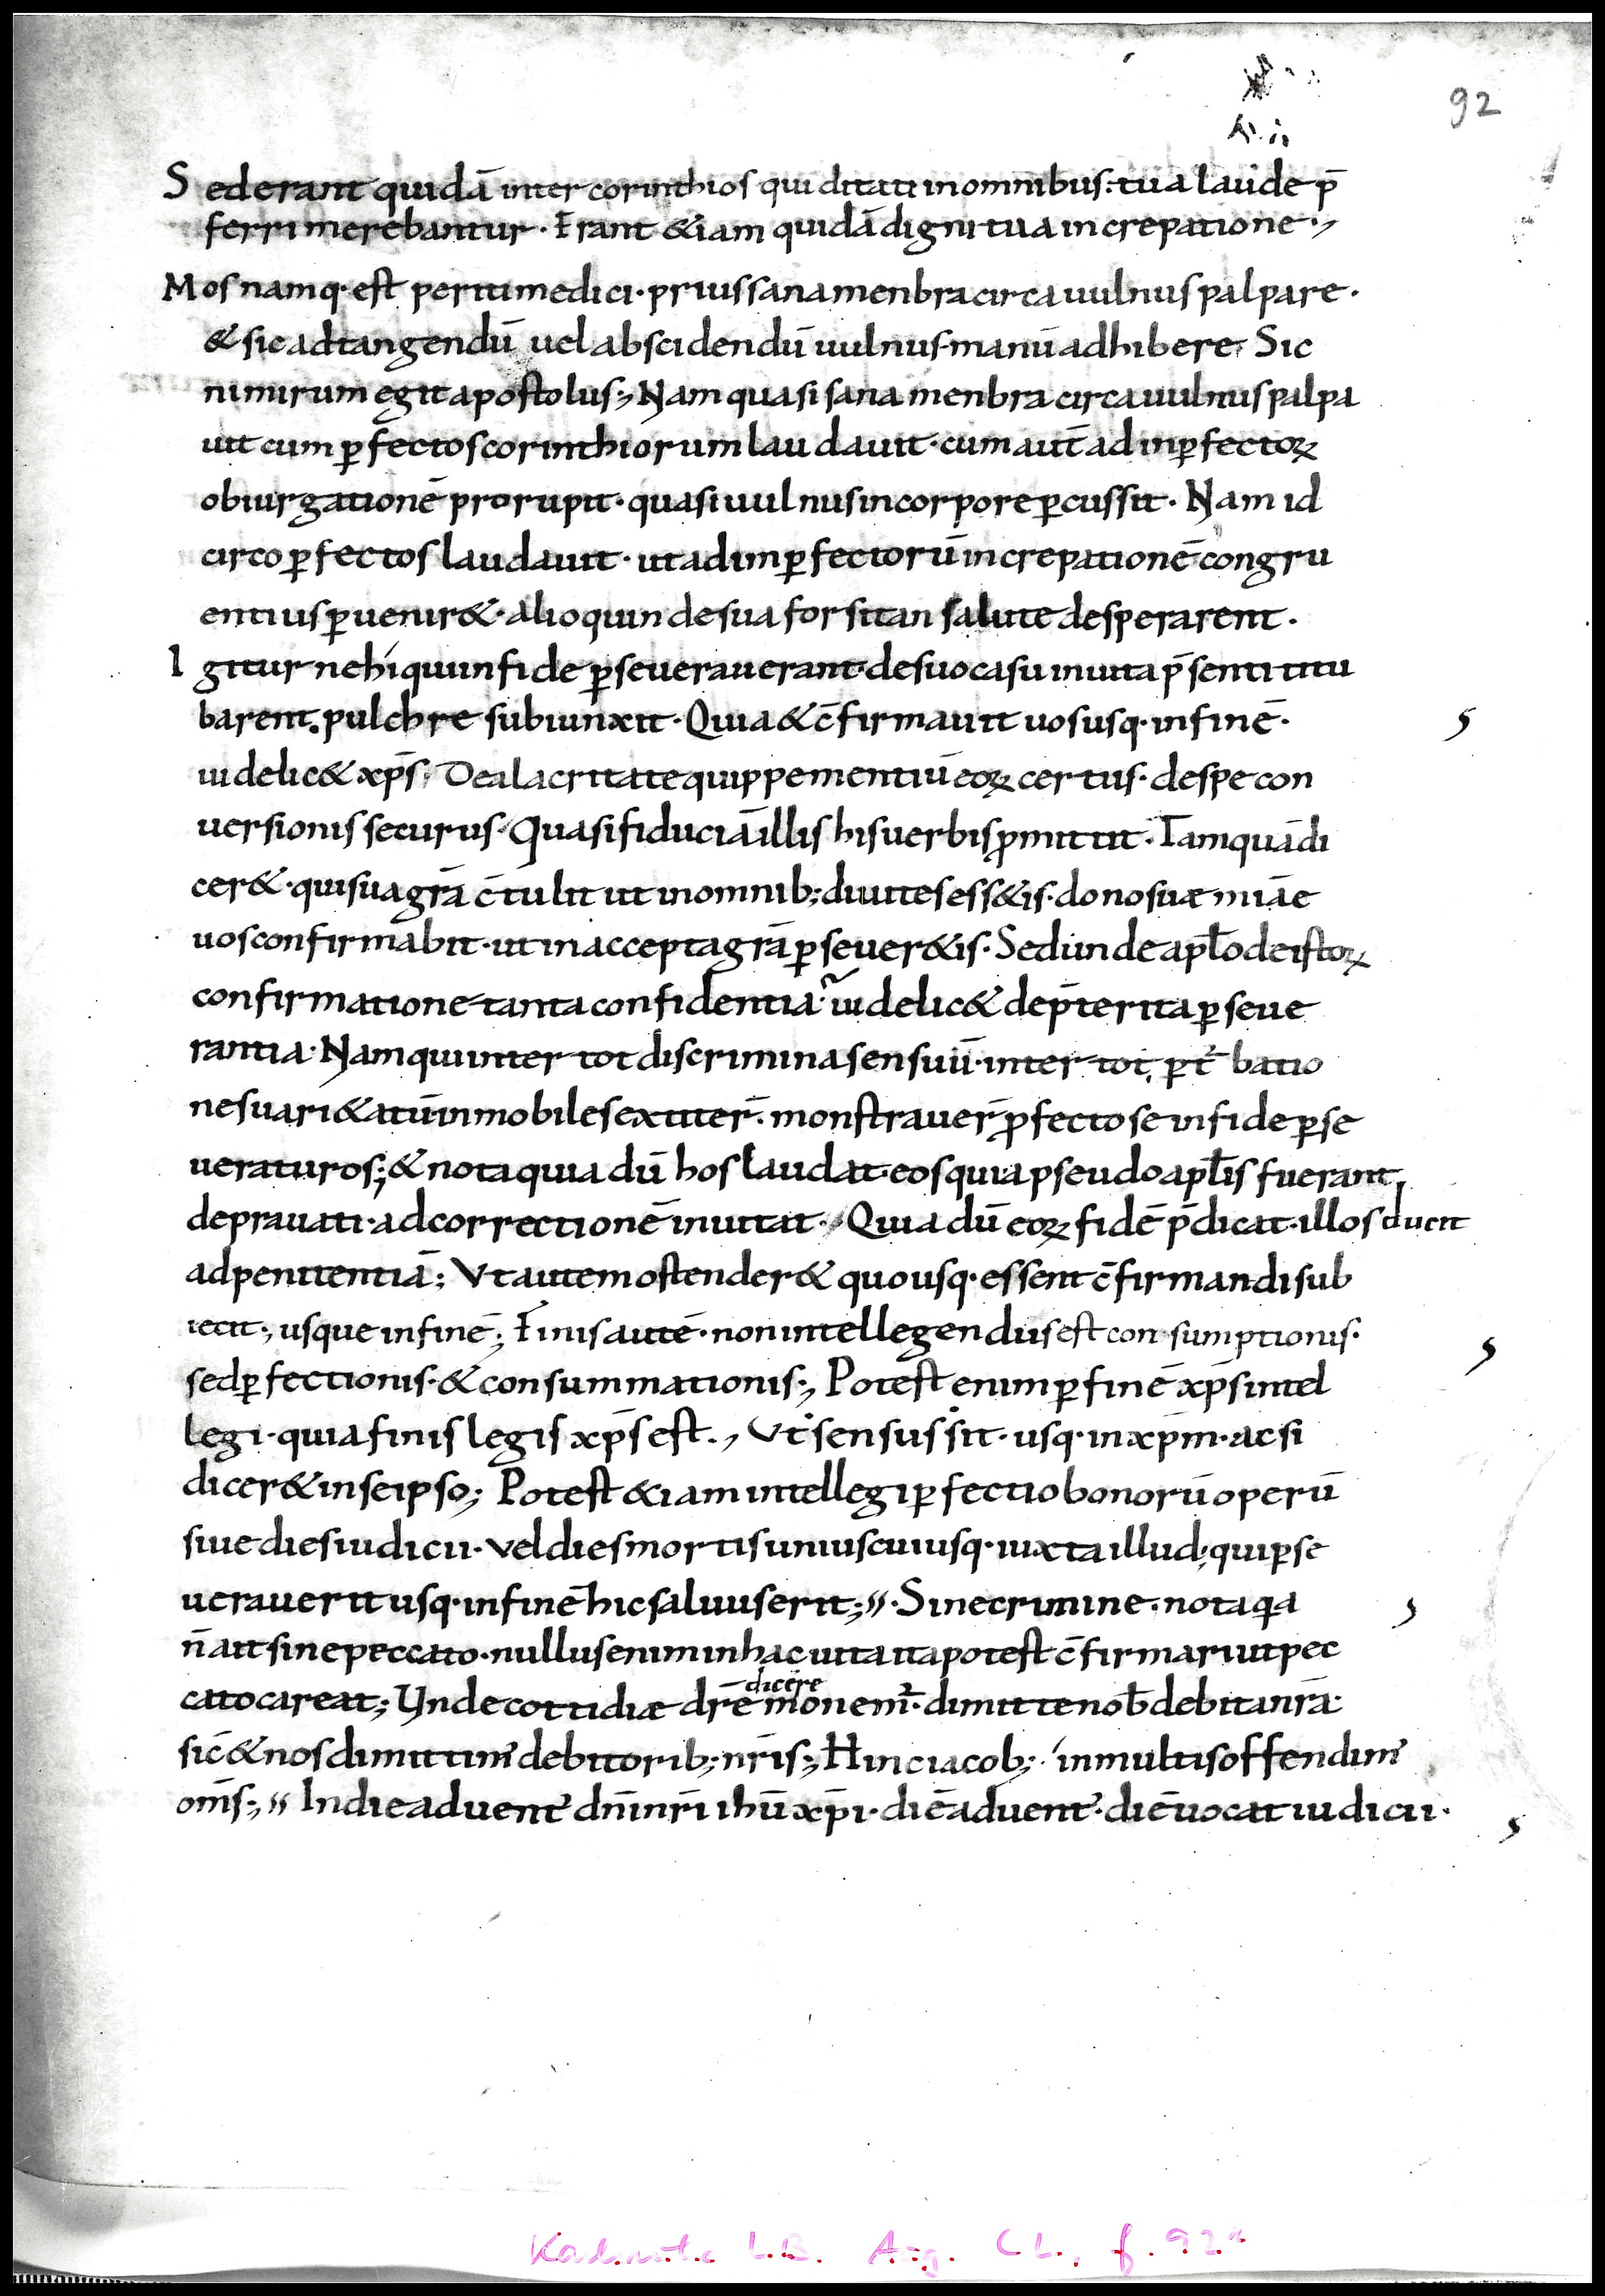 92
Sed erant quidā inter corinthios qui ditati in omnibus· tua laude p̄
ferri merebantur· Erant &iam quidā digni tua increpatione·,
Mos namq· est periti medici· prius sana menbra circa uulnus palpare·
& sic ad tangendū uel abscidendū uulnus· manū adhibere· Sic
nimirum egit apostolus·, Nam quasi sana menbra circa uulnus palpa
uit cum ꝑfectos corinthiorum laudauit· cum aut̄ ad inꝑfectoꝝ
obiurgationē prorupit· quasi uulnus in corpore ꝑcussit· Nam id
circo ꝑfectos laudauit· ut ad imꝑfectorū increpationē congru
entius ꝑuenir&· alioquin de sua forsitan salute desperarent·
Igitur ne hi qui in fide ꝑseuerauerant· de suo casu in uita p̄senti titu
barent· pulchre subiunxit· Quia & c̄firmauit uos usq· in finē·
uidelic& xp̄s· De alacritate quippe mentiū eoꝝ certus· de spe con
uersionis securus· Quasi fiduciā illis his uerbis ꝓmittit· Tamquā di
cer&· qui sua grā c̄tulit ut in omnib; diuites ess&is· dono suæ miāe
uos confirmabit· ut in accepta grā ꝑseuer&is· Sed unde apl̄o de istoꝝ
confirmatione tanta confidentia· uidelic& de p̄terita ꝑseue
rantia· Nam qui inter tot discrimina sensuū· inter tot ꝑt̄batio
nes uari&atū inmobiles extiter̄· monstrauer̄ ꝓfecto se in fide ꝑse
ueraturos; & nota quia dū hos laudat· eos qui a pseudoapl̄is fuerant
deprauati· ad correctionē inuitat· Quia dū eoꝝ fidē p̄dicat· illos ducit
ad penitentiā; Vt autem ostender& quousq· essent c̄firmandi sub
iecit·, usque in finē; Finis autē· non intellegendus est consumptionis·
sed ꝑfectionis· & consummationis·, Potest enim ꝑ finē xp̄s intel
legi· quia finis legis xp̄s est·, Vt sensus sit· usq· in xp̄m· ac si
dicer& in se ipso; Potest &iam intellegi ꝑfectio bonorū operū
siue dies iudicii· vel dies mortis uniuscuiusq· iuxta illud; qui ꝑse
uerauerit usq· in finē hic saluus erit; Sine crimine· nota qa
n̄ ait sine peccato· nullus enim in hac uita ita potest c̄firmari ut pec
cato careat; Vnde cottidiæ dicere
drē monem̄· dimitte nob̄ debita nrā·
sic̄ & nos dimittim' debitorib; nrīs; Hinc iacob; in multis offendim'
om̄s; In die aduent' dn̄i nr̄i ihū xp̄i· diē aduent'· diē uocat iudicii·